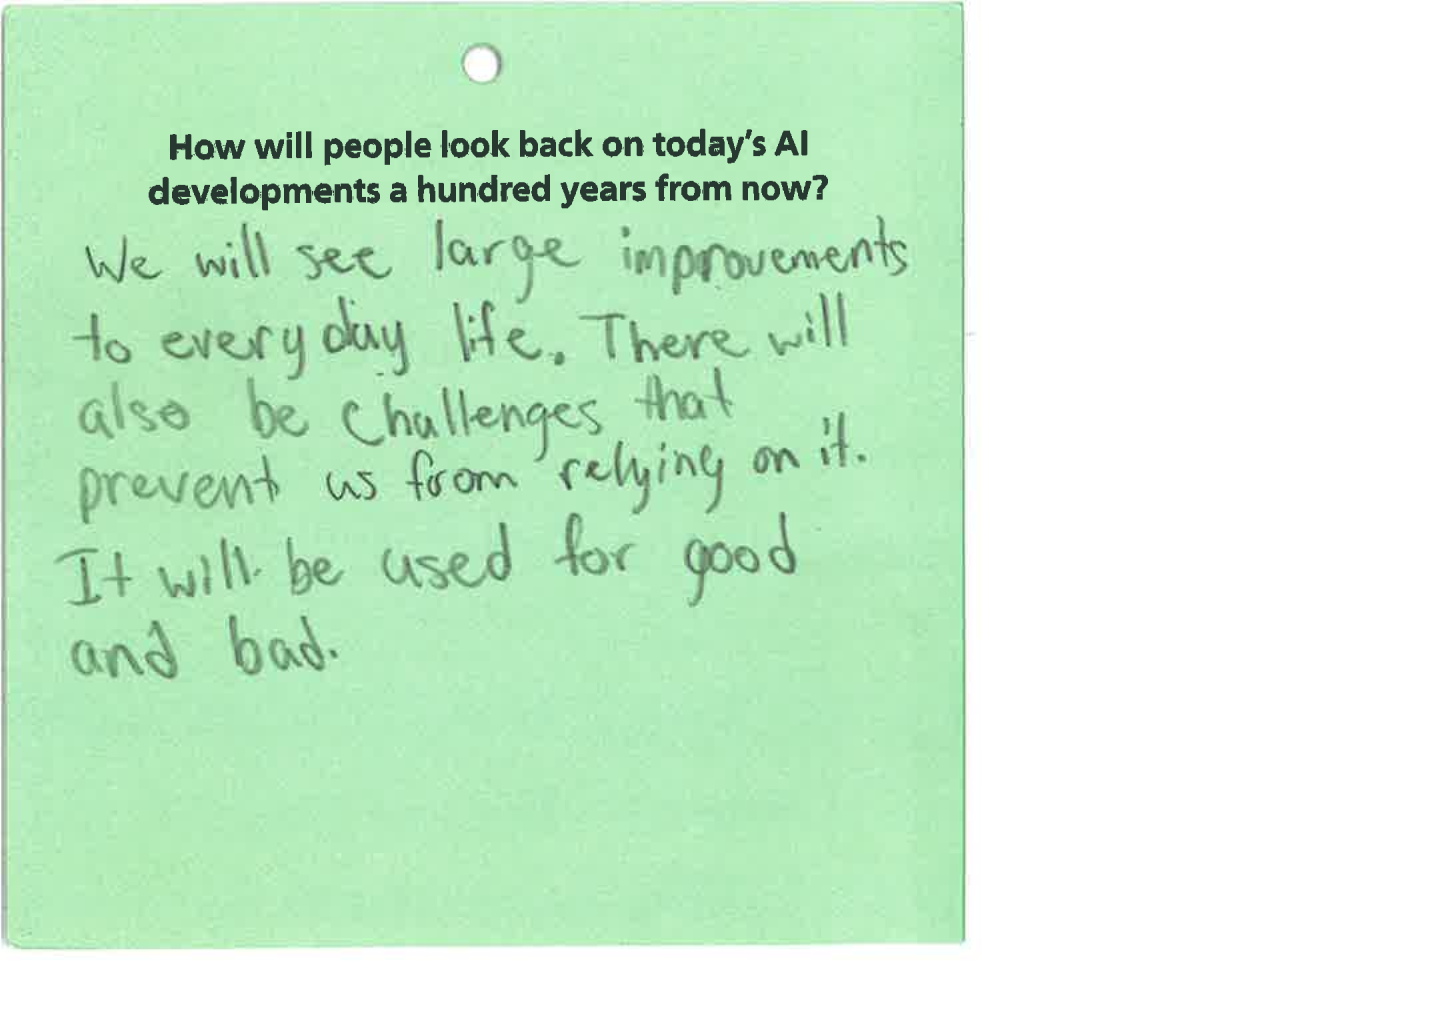 How will people look back on today's AI
developments a hundred years from now?
We will see large improvements
to everyday life. There will
also be challenges that
prevent us from relying on it.
It will be used for good
and bad.